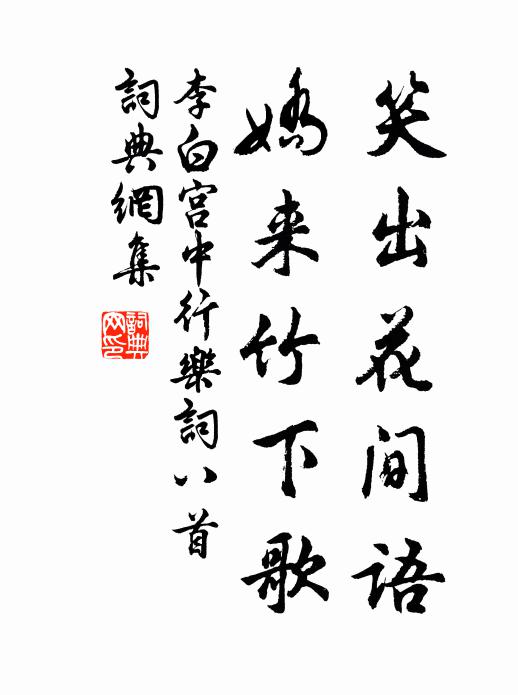 笑出花间语
娇来竹下歌
李白宫中行樂詞八首
詞典網集
詞典網印